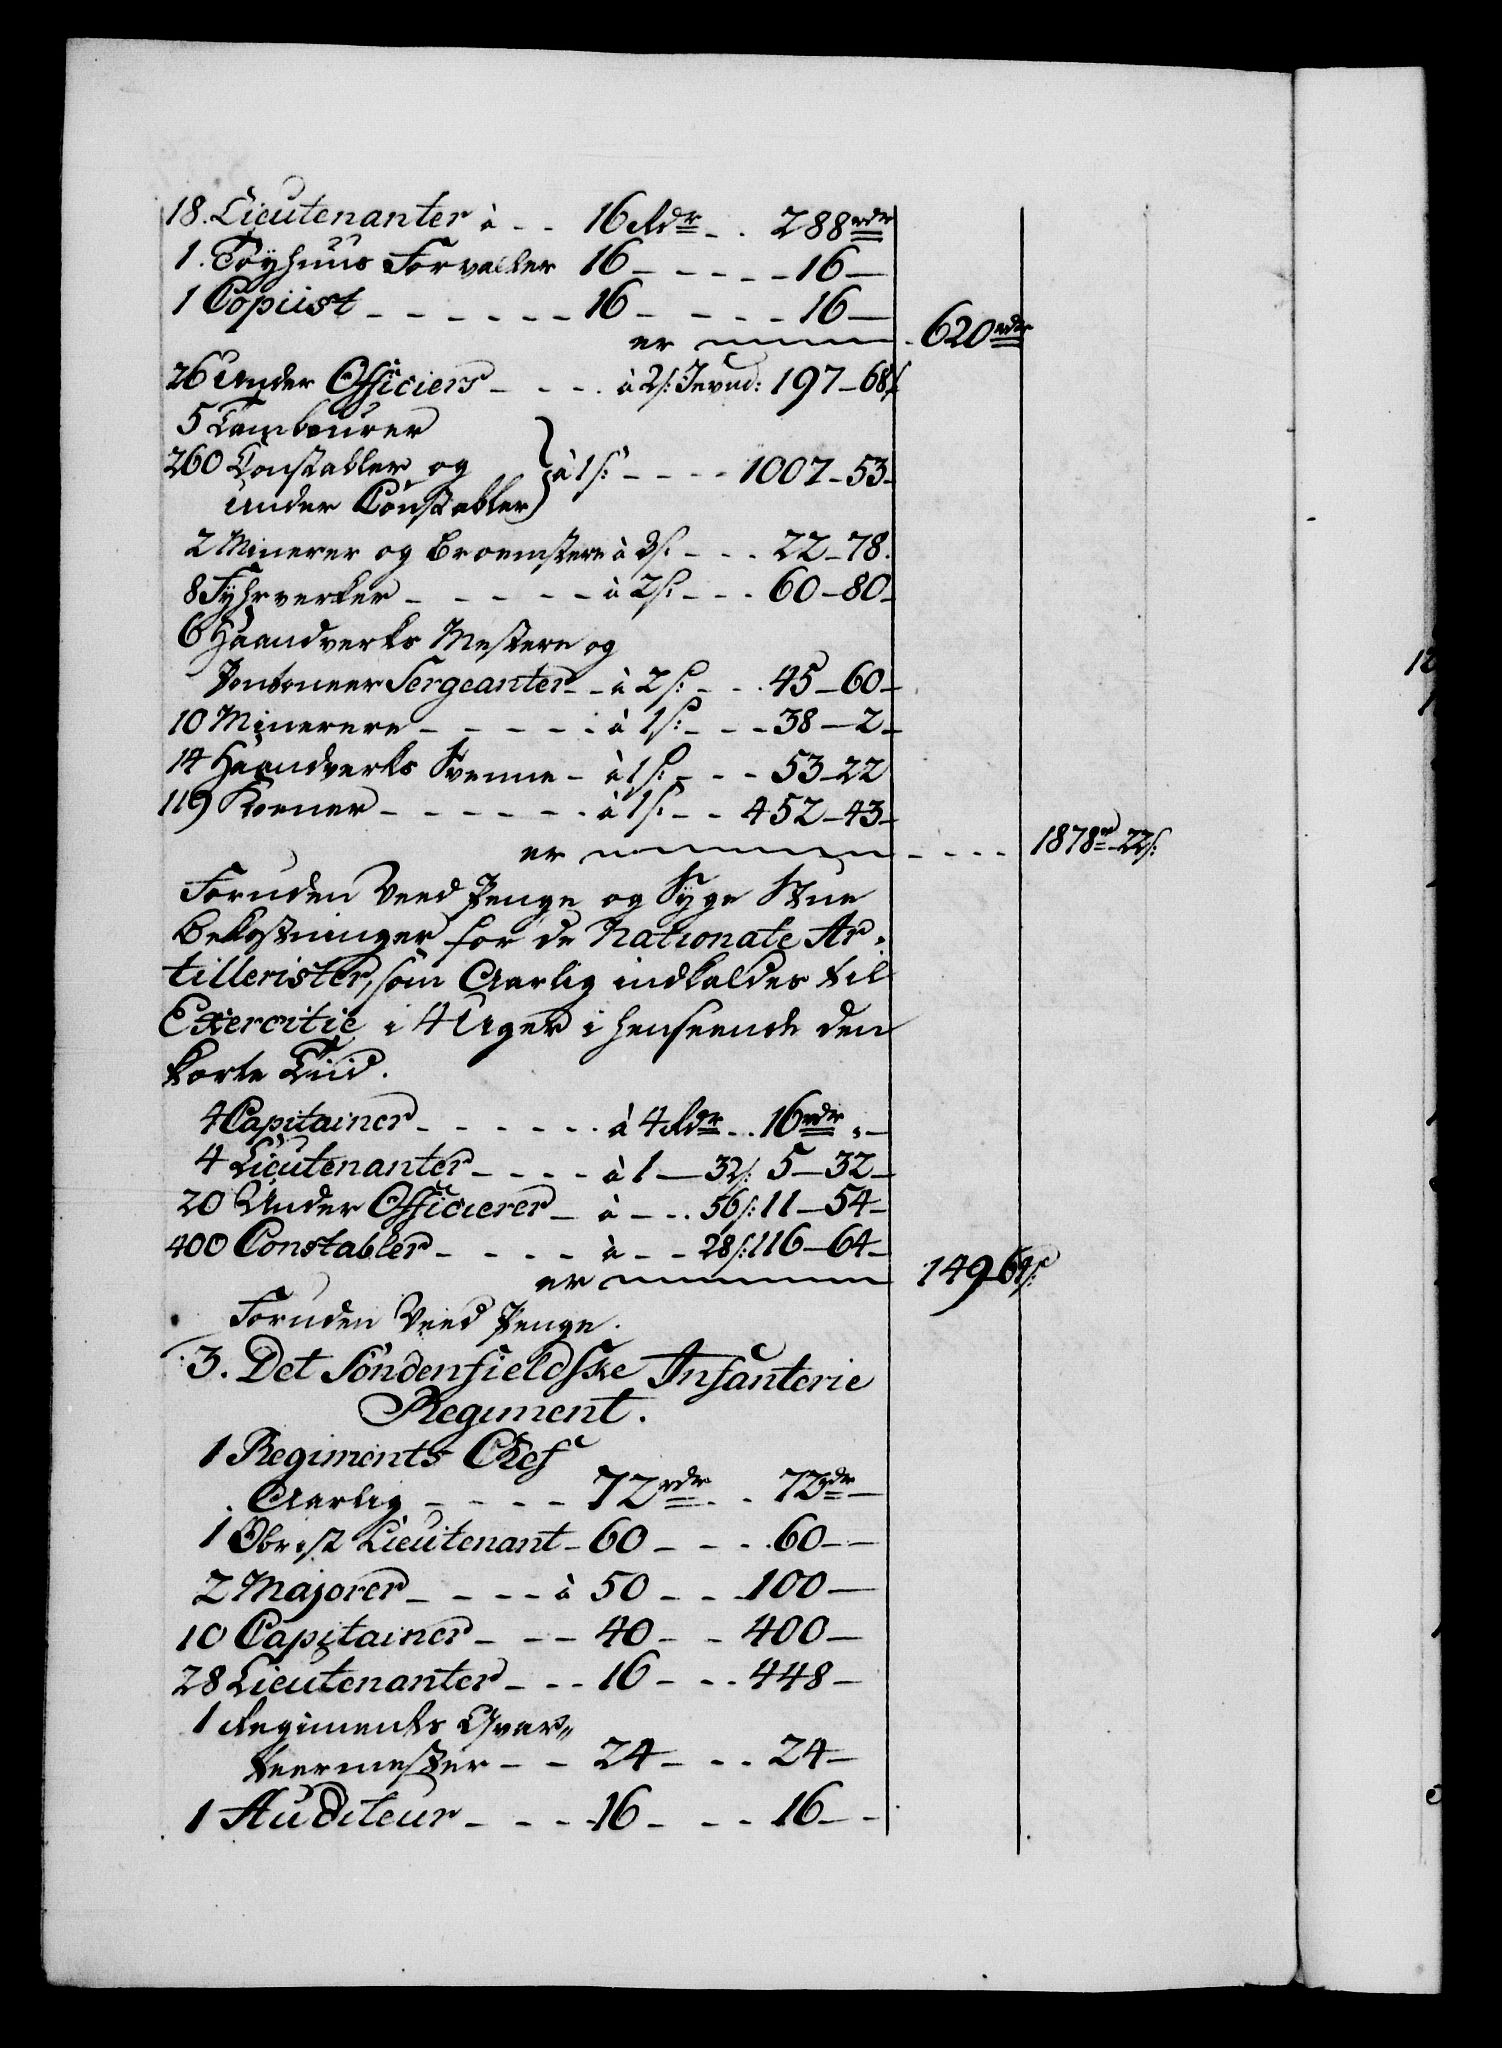 18. Lieutenanter à - - 16 Rdr - . 288 rdr
1. Töyhuus Forvalter 16 - - - - - 16 —
1 Copiist - - - - - - 16 - - - - - 16 —
er . 620 rdr
26 Under Officiers - - - . à 2 s: Jevnd: 197 - 68 s
5 Tambourer
260 Constabler og
under Constabler } à 1 s: - - - - 1007 - 53 -
2 Minerer og Broemestere à 3 s: - - - 22 - 78.
8 Fyhrverker - - - - - à 2 s: - - - 60 - 80 -
6 Haandverks Mestere og
Pontoneer Sergeanter - - à 2 s: - - . 45 - 60 -
10 Minerere - - - - - à 1 s: - - - 38 - 2 -
14 Haandverks Svenne - à 1 s: - - - 53 - 22
119 - - - - - - à 1 s: - - 452 - 43 -
er - - - - 1878 r - 22 s:
Foruden Veed Penge og Syge Stue
Bekostninger for de Nationale Ar-
tillerister, som Aarlig indkaldes til
Exercitie i 4 Uger i henseende den
korte Tiid.
4 Capitainer - - - - - - à 4 Rdr - . 16 rdr . -
4 Lieutenanter - - - - à 1 — 32 s: 5 - 32 -
20 Under Officierer - à - - . 56 s: 11 - 54 -
400 Constabler - - - - à - - 28 s: 116 - 64 -
er 149 - 54 s:
Foruden Veed Penge.
3. Det Söndenfieldske Infanterie
Regiment.
1 Regiments Chef
Aarlig - - - - 72 rdr - . 72 rdr —
1 Obrist Lieutenant - 60 - - - . 60 —
2 Majorer - - - - à 50 - - - 100 —
10 Capitainer - - - 40 - - 400 —
28 Lieutenanter - - - 16 - - . 448 —
1 Regiments Qvar"
teermester - - 24 - - . 24 —
1 Auditeur - - - - 16 - - - 16 - -